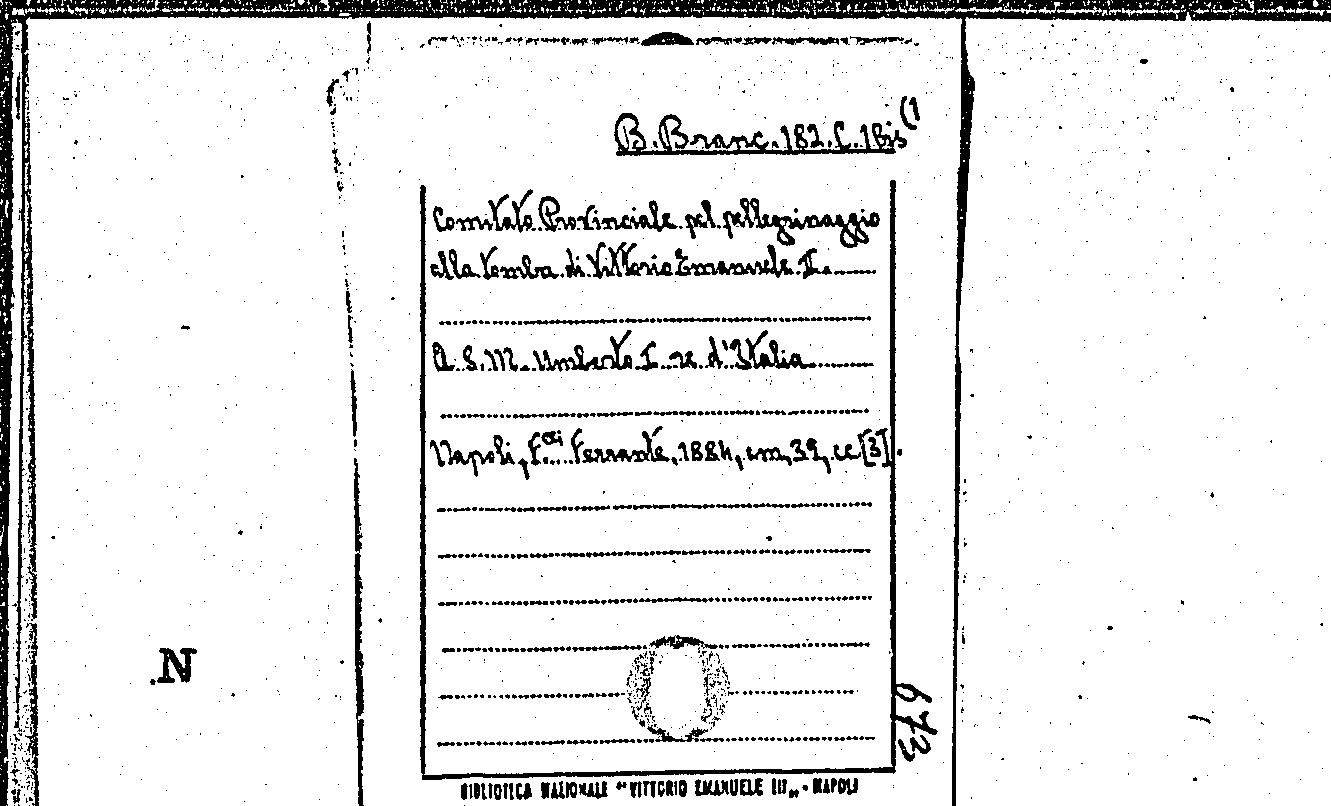 B. Branc. 182. C. 1 bis (1
Comitato Provinciale pel pellegrinaggio
alla tomba di Vittorio Emanuele II.
A S. M. Umberto I re d'Italia
Napoli, F.lli Ferrante, 1884, cm, 39, cc [3].
673
N
BIBLIOTECA NAZIONALE "VITTORIO EMANUELE III„ - NAPOLI